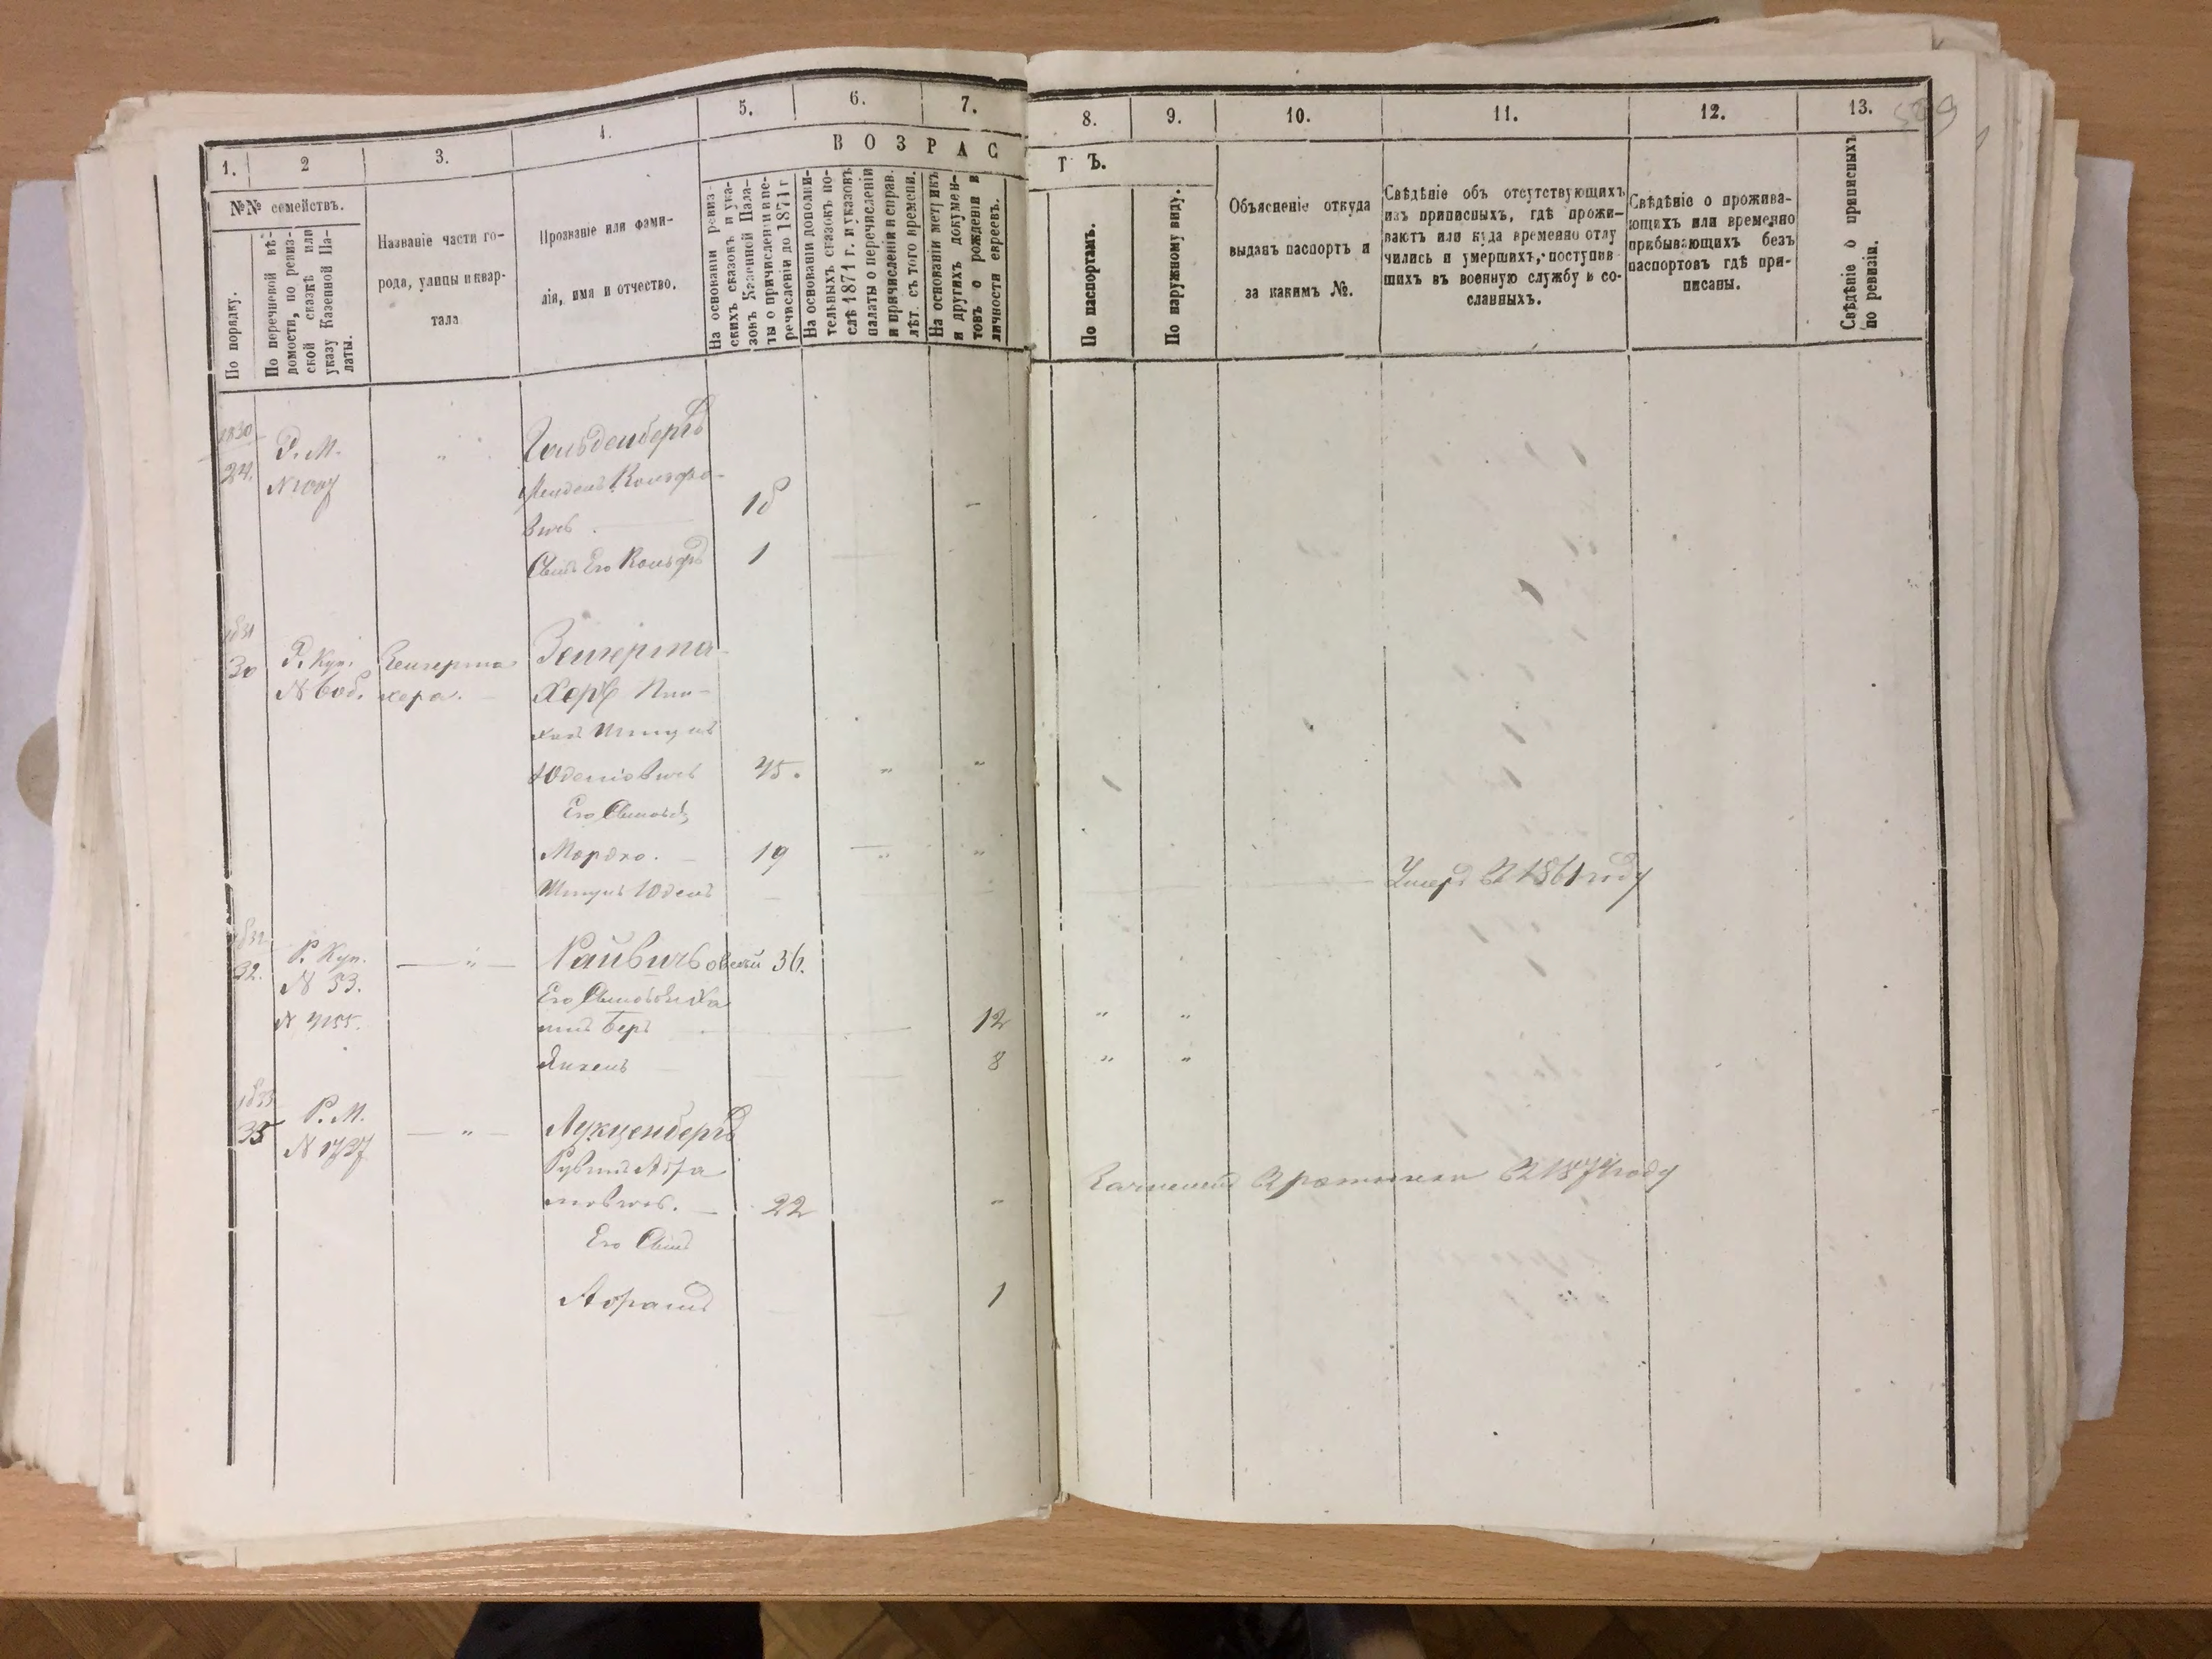 1.
2
3.
4.
5.
6.
7.
8.
9.
10.
11.
12.
13.
ВОЗРАС
ТЪ.
№№ семействъ.
По порядку.
По перечневой вѣ-
домости, по ревиз-
ской сказкѣ или
указу Казенной Па-
латы.
Названіе части го-
рода, улицы и квар-
тала
Прозваніе или фами-
лія, имя и отчество.
На основаніи ревиз-
скихъ сказокъ и ука-
зовъ Казенной Пала-
ты о причисленіи и пе-
речисленіи до 1871 г
На основаніи дополни-
тельныхъ сказокъ по-
слѣ 1871 г. и указовъ
палаты о перечисленіи
и причисленіи и справ.
лѣт. съ того времени.
На основаніи метрикъ
и другихъ докумен-
товъ о рожденіи и
личности евреевъ.
По паспортамъ.
По наружному виду.
Объясненіе откуда
выданъ паспортъ и
за какимъ №.
Свѣдѣніе объ отсутствующихъ
изъ приписныхъ, гдѣ прожи-
ваютъ или куда временно отлу
чились и умершихъ, поступив
шихъ въ военную службу и со-
сланныхъ.
Свѣдѣніе о прожива-
ющихъ или временно
прибывающихъ безъ
паспортовъ гдѣ при-
писаны.
Свѣдѣніе о приписныхъ
по ревизіи.
1830
24.
Р. М.
N 1007
Гольденбергъ
Мендель
вичъ
18
Сынъ Его
1
1831
30
Р. Куп.
N 608.
Зейгерма
хера.
Зейгерма-
херъ Пин-
хасъ
45.
Его Сыновья
Мордхо.
19
Юдель
Умеръ въ 1861 году
1832
32.
Р. Куп.
N 53.
N 4155.
Райвичъ Овсей 36.
Его Сыновья
Беръ
12
Янкель
8
1833
35
Р. М.
N 1787
Лукценбергъ
Рувинъ Абра
мовичъ.
22
въ 1874 году
Его Сынъ
Абрамъ
1